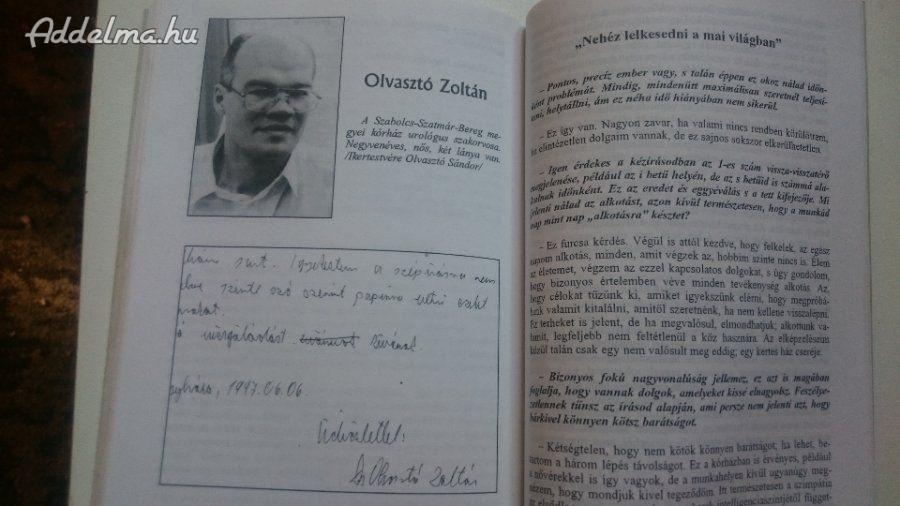 Addelma.hu
Olvasztó Zoltán
A Szabolcs-Szatmár-Bereg me-
gyei kórház urológus szakorvosa.
Negyvenéves, nős, két lánya van.
/Ikertestvére Olvasztó Sándor/
szívt. a szépírásra nem
szinte szó szerint papírra
1997.06.06.
Üdvözlettel:
Dr Olvasztó Zoltán
„Nehéz lelkesedni a mai világban”
– Pontos, precíz ember vagy, s talán éppen ez okoz nálad időn-
ként problémát. Mindig, mindenütt maximálisan szeretnél teljesí-
teni, helytállni, ám ez néha idő hiányában nem sikerül.
– Ez így van. Nagyon zavar, ha valami nincs rendben körülöttem,
ha elintézetlen dolgaim vannak, de ez sajnos sokszor elkerülhetetlen.
– Igen érdekes a kézírásodban az 1-es szám vissza-visszatérő
megjelenése, például az i betű helyén, de az s betűid is számmá ala-
kulnak időnként. Ez az eredet és eggyéválás s a tett kifejezője. Mi
jelenti nálad az alkotást, azon kívül természetesen, hogy a munkád
nap mint nap „alkotásra” késztet?
– Ez furcsa kérdés. Végül is attól kezdve, hogy felkelek, az egész
napom alkotás, minden, amit végzek az, hobbim szinte nincs is. Élem
az életemet, végzem az ezzel kapcsolatos dolgokat, s úgy gondolom,
hogy bizonyos értelemben véve minden tevékenység alkotás. Az,
hogy célokat tűzünk ki, amiket igyekszünk elérni, hogy megpróbá-
lunk valamit kitalálni, amitől szeretnénk, ha nem kellene visszalépni.
Ez terheket is jelent, de ha megvalósul, elmondhatjuk; alkottunk va-
lamit, legfeljebb nem feltétlenül a köz hasznára. Az elképzeléseim
közül talán csak egy nem valósult meg eddig; egy kertes ház cseréje.
– Bizonyos fokú nagyvonalúság jellemez, s ez azt is magában
foglalja, hogy vannak dolgok, amelyeket kissé elnagyolsz. Feszélye-
zetlennek tűnsz az írásod alapján, ami persze nem jelenti azt, hogy
bárkivel könnyen kötsz barátságot.
– Kétségtelen, hogy nem kötök könnyen barátságot; ha lehet, be-
tartom a három lépés távolságot. Ez a kórházban is érvényes, például
a nővérekkel is így vagyok, de a munkahelyen kívül ugyanúgy meg-
nézem, hogy mondjuk kivel tegeződöm. Itt természetesen a szimpátia
intelligenciaszintjétől függet-